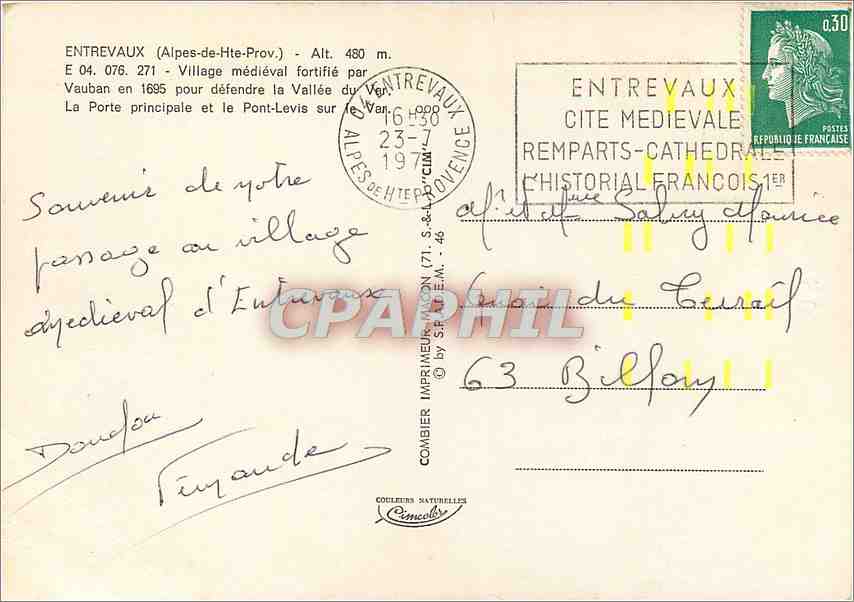 ENTREVAUX (Alpes-de-Hte-Prov.) - Alt. 480 m.
E 04. 076. 271 - Village médiéval fortifié par
Vauban en 1695 pour défendre la Vallée du Var.
La Porte principale et le Pont-Levis sur le Var.
04 ENTREVAUX
16H30
23-7
197
ALPES DE HTE PROVENCE
ENTREVAUX
CITE MEDIEVALE
REMPARTS-CATHEDRALE
L'HISTORIAL FRANCOIS 1ER
0,30
POSTES
REPUBLIQUE FRANÇAISE
Souvenir de notre
passage au village
Médiéval d'Entrevaux
Fernande
COMBIER IMPRIMEUR MACON (71. S.-&-L.) "CIM"
© by S.P.A.D.E.M. - 46
Mr et Mme Maurice
Quai du Terrail
63 Billom
CPAPHIL
COULEURS NATURELLES
Cimcolor